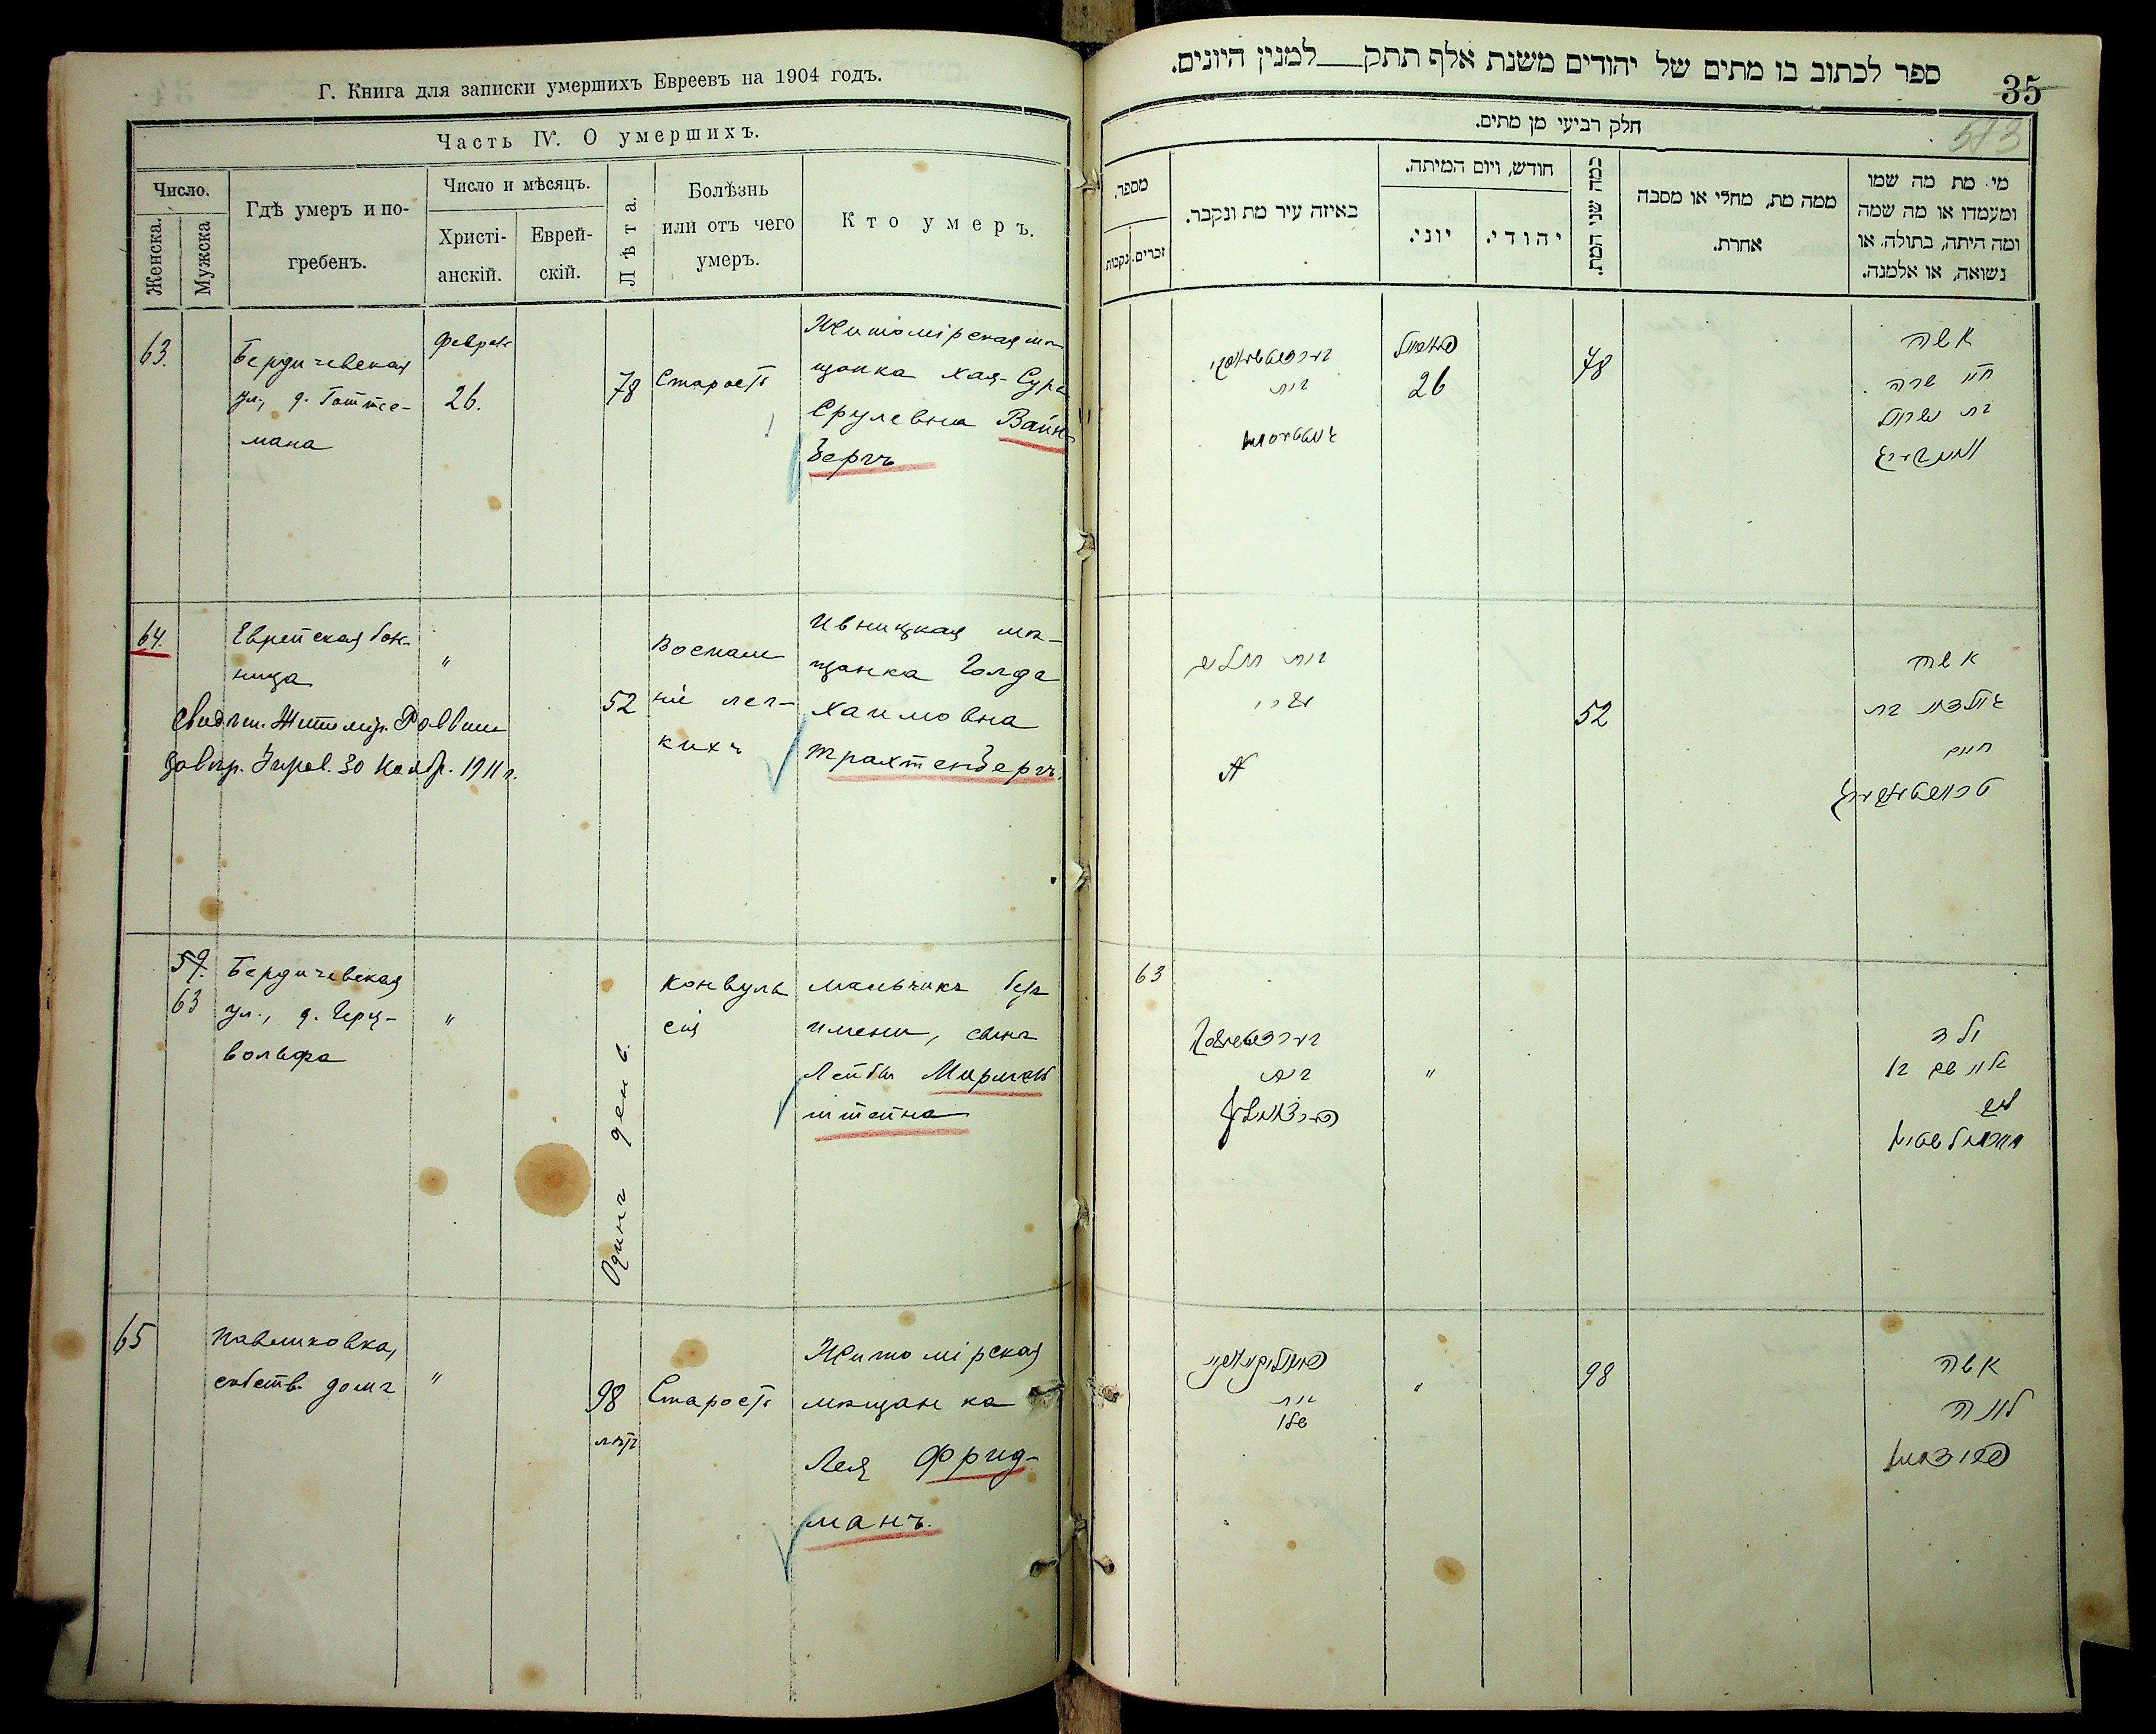 Г. Книга для записки умершихъ Евреевъ на 1904 годъ.
Часть IV. О умершихъ.
Число.
Женска.
Мужска
Гдѣ умеръ и по-
гребенъ.
Число и мѣсяцъ.
Христі-
анскій.
Еврей-
скій.
Лѣта.
Болѣзнь
или отъ чего
умеръ.
Кто умеръ.
63.
Бердичевская
ул., д. Готтес-
мана
Февраля
26.
78
Старость
Житомірская мѣ-
щанка Хая-Сура
Срулевна Вайн-
бергъ
64.
Еврейская бол-
ница
"
Житомир. Раввин
30 Ноябр. 1911 г.
52
Воспале
ніе лег-
кихъ
Ивницкая мѣ-
щанка Голда
Хаимовна
Трахтенбергъ.
59.
63
Бердичевская
ул., д. Герц-
вольфа
"
Одинъ день.
Конвуль
сія
мальчикъ безъ
имени, сынъ
Лейбы
штейна
65
Павликовка,
собств. домъ
"
98
лѣтъ
Старость
Житомірская
мѣщанка
Лея Фрид-
манъ.
ספר לכתוב בו מתים של יהודים משנת אלף תתק למנין היונים.
35
573
חלק רביעי מן מתים.
מספר.
זכרים.
נקבות
באיזה עיר מת ונקבר.
חודש, ויום המיתה.
יוני.
יהודי.
כמה שני המת.
ממה מת, מחלי או מסבה
אחרת.
מי מת מה שמו
ומעמדו או מה שמה
ומה היתה, בתולה, או
נשואה, או אלמנה.
בית
26
78
אשה
חיי שרה
בת ישראל
וויינבערג
בית
52
אשה
גאלדע בת
חיים
טראכטענבערג
63
בית
"
ילד
בלי שם בן
לייב
בית
"
98
אשה
לאה
פרידמאן